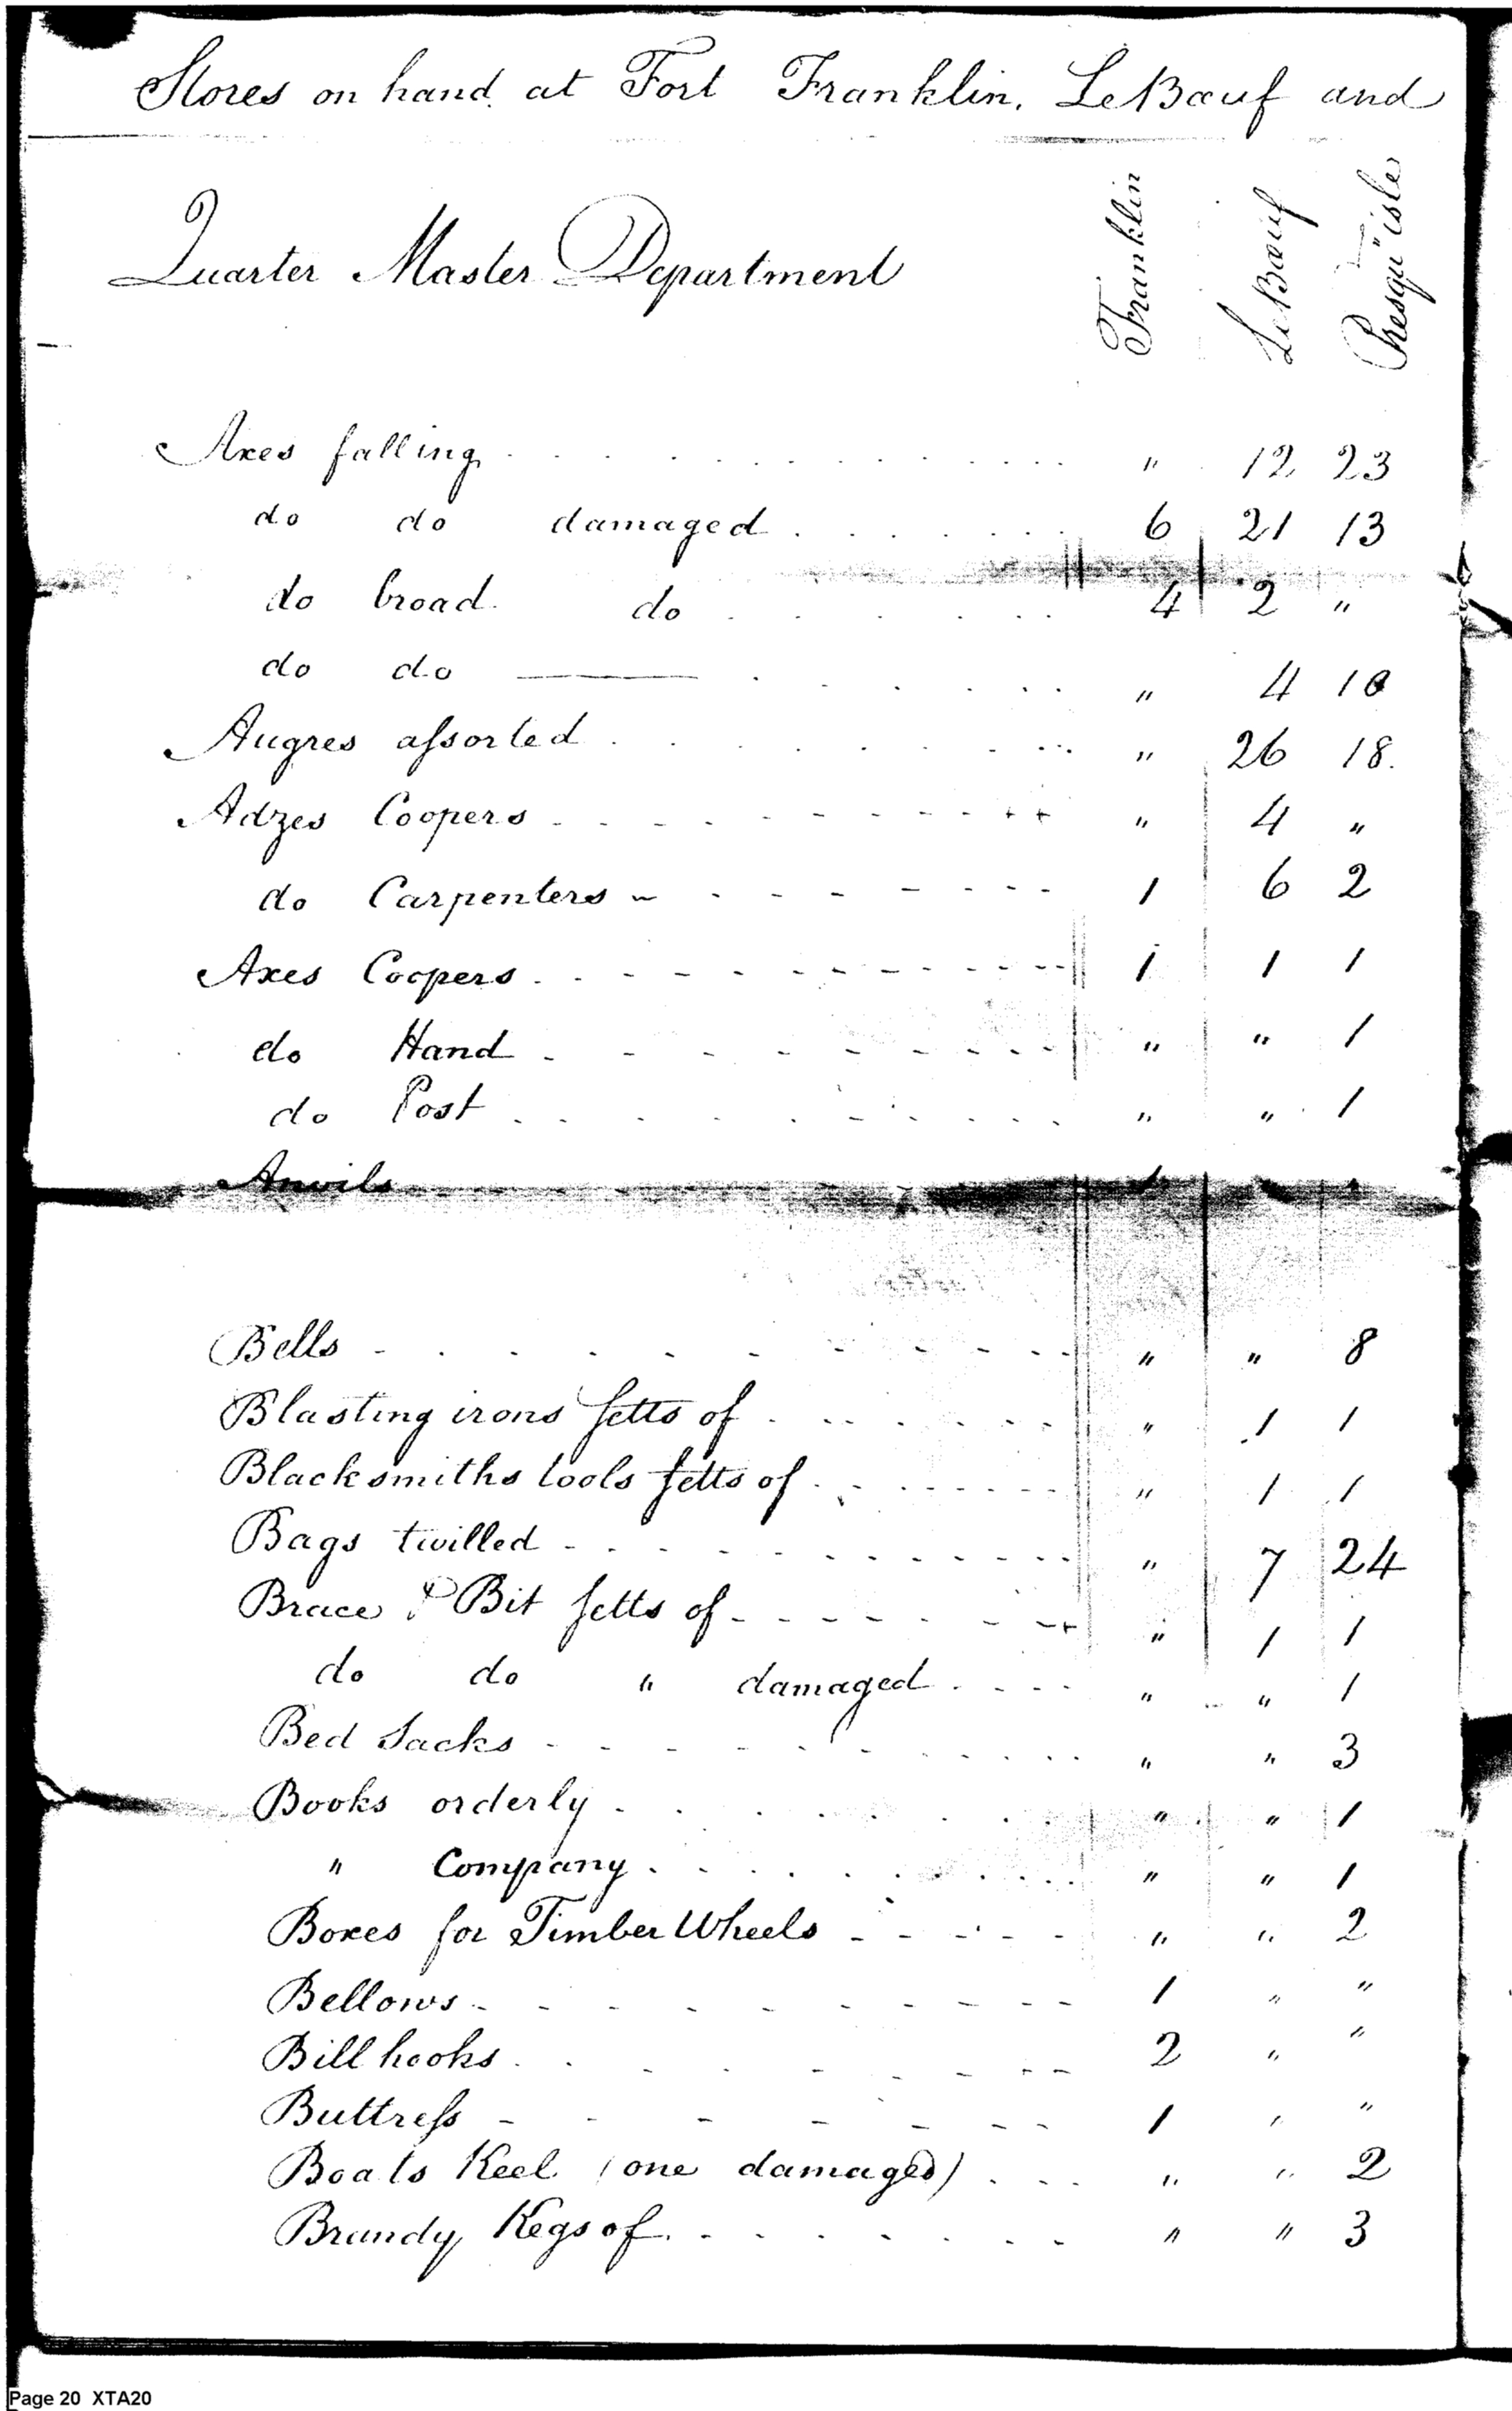 Stores on hand at Fort Franklin, LeBœuf and
Quarter Master Department
Franklin
LeBœuf
Presqu"isle
Axes falling . . . . . . . . . . . . . . " 12 23
do do damaged . . . . . . . 6 21 13
do broad do . . . . . . 4 2 "
do do ——— . . . . . . " 4 10
Augres assorted . . . . . . . . . " 26 18.
Adzes Coopers - - - - - - - - - " 4 "
do Carpenters - - - - - - - 1 6 2
Axes Coopers - - - - - - - - - - 1 1 1
do Hand - - - - - - - - - " " 1
do Post . . . . . . . . . . " " 1
Anvils
Bells - . . . . - - - - - " " 8
Blasting irons setts of . . . . . . " 1 1
Blacksmiths tools setts of . . - - - - - " 1 1
Bags twilled - - - - - - - - - - " 7 24
Brace & Bit setts of - - - - - - - " 1 1
do do " damaged . . . . " " 1
Bed Sacks - - - - - - - . . . . " " 3
Books orderly . . . . . . . . " " 1
" Company . . . . . . . . . " " 1
Boxes for Timber Wheels - - - - - " " 2
Bellows - - - - - - - - - 1 " "
Bill hooks . . . - - - - - 2 " "
Buttress - - - - - - - 1 " "
Boats Keel (one damaged) . . . " " 2
Brandy Kegs of . . . . . . . - - " " 3
Page 20 XTA20